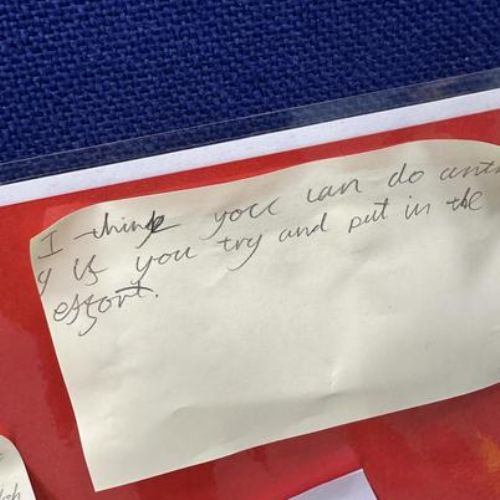 I think you can do anth
y if you try and put in the
effort.